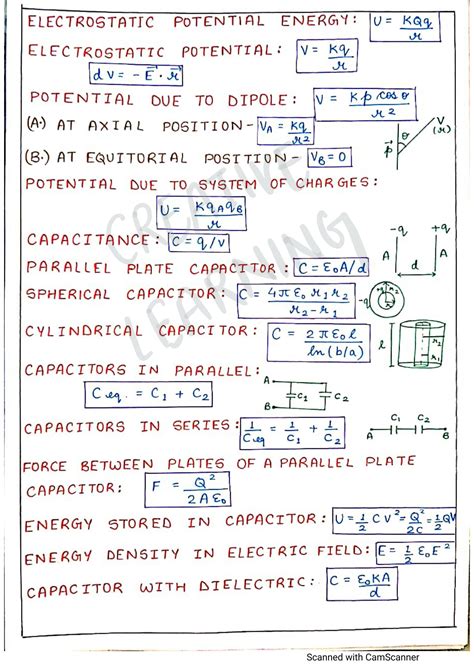 ELECTROSTATIC POTENTIAL ENERGY: U = KQq/r
ELECTROSTATIC POTENTIAL: V = Kq/r
dV = -E⃗·r⃗
POTENTIAL DUE TO DIPOLE: V = Kp cos θ/r²
(A.) AT AXIAL POSITION - V_A = Kq/r²
(B.) AT EQUITORIAL POSITION - V_B = 0
θ V (r) p⃗
POTENTIAL DUE TO SYSTEM OF CHARGES:
U = Kq_A q_B/r
CAPACITANCE: C = q/V
-q +q
A A
d
PARALLEL PLATE CAPACITOR: C = ε₀A/d
SPHERICAL CAPACITOR: C = 4πε₀r₁r₂/r₂-r₁
-q
CYLINDRICAL CAPACITOR: C = 2πε₀l/ln(b/a)
l r₂ r₁
CAPACITORS IN PARALLEL:
C_eq. = C₁ + C₂
A B C₁ C₂
CAPACITORS IN SERIES: 1/C_eq = 1/C₁ + 1/C₂
A C₁ C₂ B
FORCE BETWEEN PLATES OF A PARALLEL PLATE
CAPACITOR: F = Q²/2Aε₀
ENERGY STORED IN CAPACITOR: U = 1/2 CV² = Q²/2C = 1/2 QV
ENERGY DENSITY IN ELECTRIC FIELD: E = 1/2 ε₀E²
CAPACITOR WITH DIELECTRIC: C = ε₀KA/d
CREATIVE
LEARNING
Scanned with CamScanner